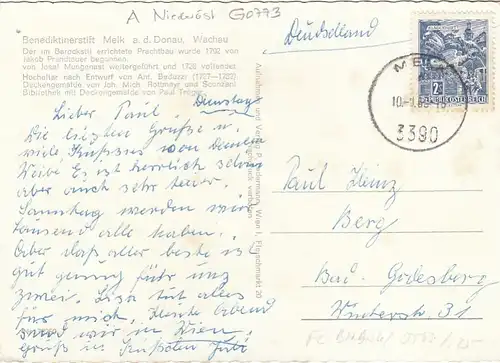 A Niedröst G0773
Benediktinerstift Melk a. d. Donau, Wachau
Der im Barockstil errichtete Prachtbau wurde 1702 von
Jakob Prandtauer begonnen,
von Josef Mungenast weitergeführt und 1726 vollendet
Hochaltar nach Entwurf von Ant. Beduzzi (1727-
Deckengemälde von Joh. Mich. Rottmayr und Scanzani
Bibliothek mit Deckengemälde von Paul Troger
Dienstag
Lieber Paul,
Die liebsten Grüße u.
viele Küsse von deinem
Weibe. Es ist herrlich schön
aber auch sehr teuer.
Samstag werden wir
tausend alle haben.
Aber das aller beste ist
gut genug für uns
zwei. Lisa tut alles
für mich. Heute Abend
sind wir in Wien,
Aufnahme und Verlag P. Ledermann, Wien I, Fleischmarkt 20
Deutschland
MELK
3390
2 S
REPUBLIK ÖSTERREICH
Paul Heinz
Berg
Bad-Godesberg
Winterstr. 31